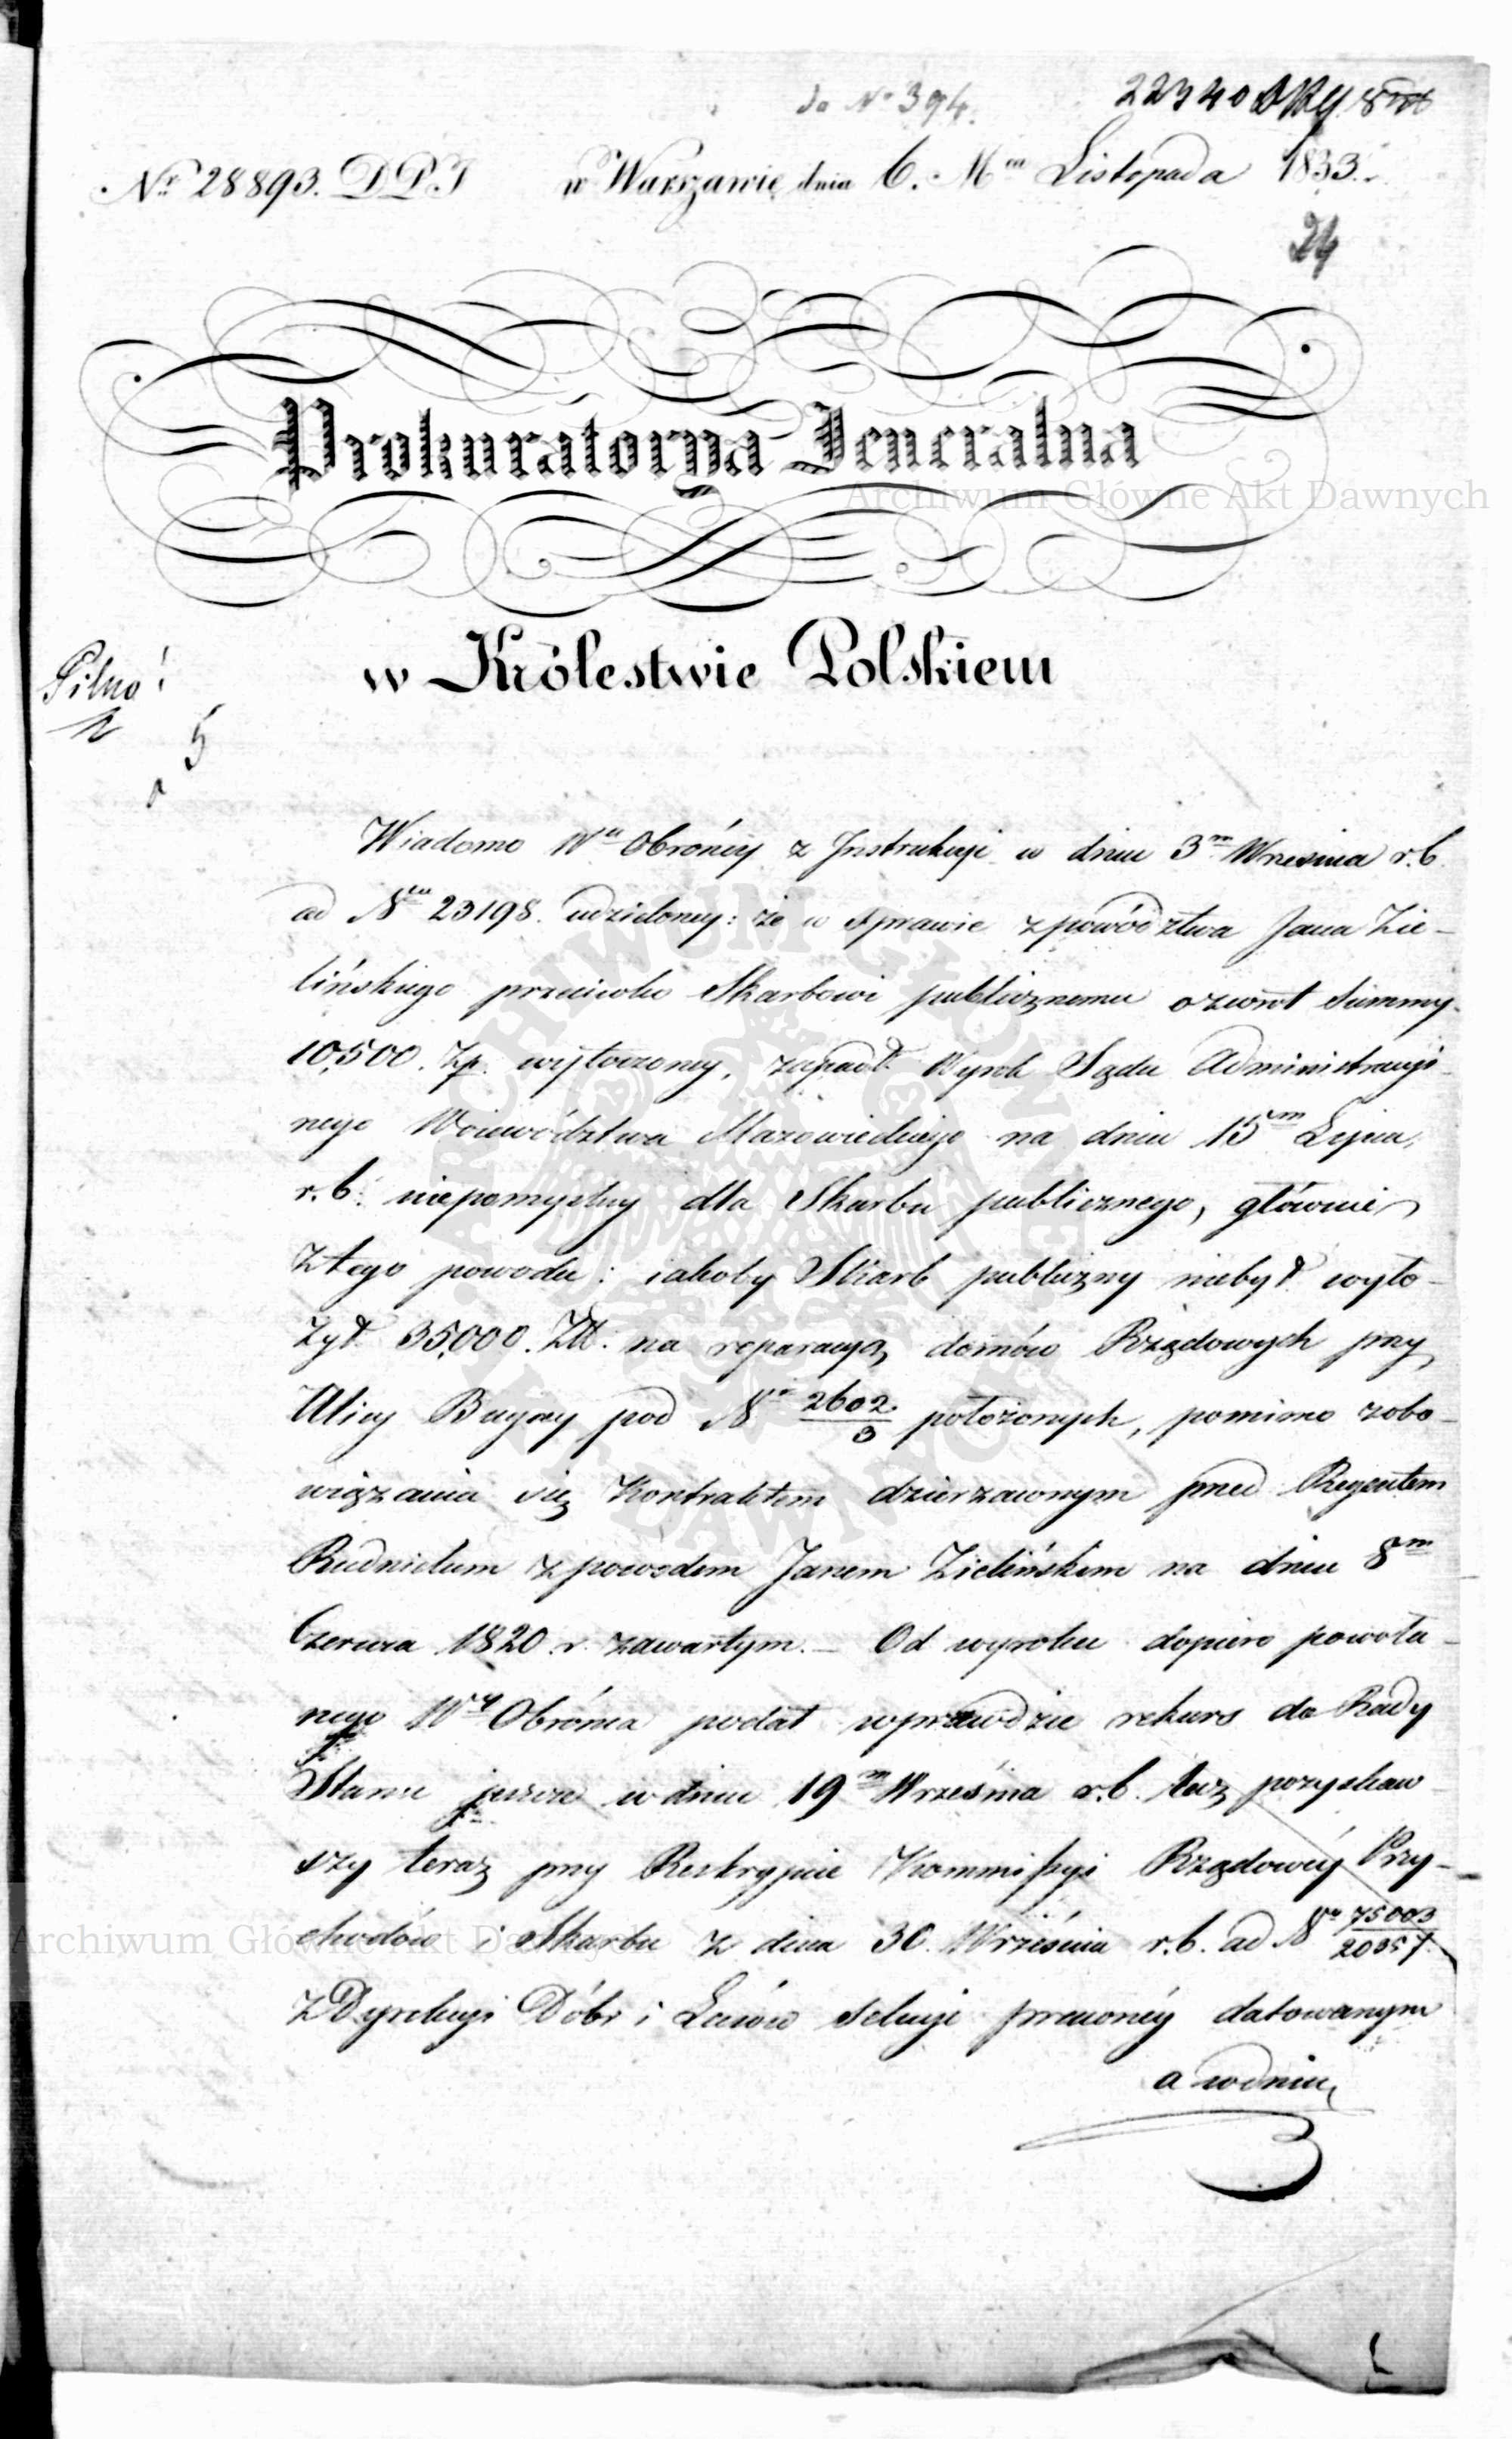 do No 394.
22340
No 28893. DPJ w Warszawie dnia 6. Mca Listopada 1833.
24
Prokuratorya Jeneralna
Archiwum Główne Akt Dawnych
w Królestwie Polskiem
Pilno!
5
Wiadomo Wu Obrońcy z Instrukcyi w dniu 3m Wrzesnia r.b.
ad Nru 23198. udzieloney: że w sprawie z powództwa Jana Zie-
lińskiego przeciwko Skarbowi publicznemu o zwrot Summy
10,500. Zp. wytoczoney, zapadł Wyrok Sądu Administracyi-
nego Woiewództwa Mazowieckiego na dniu 15m Lipca,
r.b. niepomyslny dla Skarbu publicznego, głównie
z tego powodu: iakoby Skarb publiczny niebył wyło-
żył 35,000. Złł. na reparacyą domów Rządowych przy
Ulicy Bugay pod Nro 2602/3 położonych, pomimo zobo-
wiązania się Kontraktem dzierzawnym przed Regentem
Rudnickim z powodem Janem Zielińskim na dniu 8m
Czerwca 1820 r. zawartym. – Od wyroku dopiero powoła-
nego Wy Obrońca podał wprawdzie rekurs do Rady
Stanu jeszcze w dniu 19m Wrześnía r.b. lecz pozyskaw-
szy teraz przy Reskrypcie Kommissyi Rządowéy Przy-
chodów i Skarbu z dnia 30. Września r.b. ad Nru 75003/20357.
z Dyrekcyi Dóbr i Lasów Sekcyi prawnéy datowanym
a w dniu
Archiwum Główne Akt Dawnych
ARCHIWUM GŁÓWNE AKT DAWNYCH